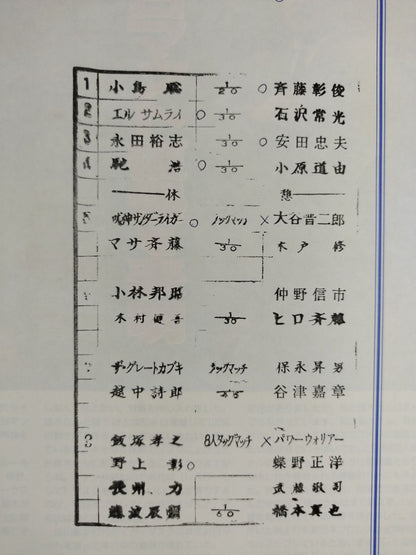 1 小島聡 1/20 ○ 斉藤彰俊
2 エルサムライ ○ 1/30 石沢常光
3 永田裕志 1/30 ○ 安田忠夫
4 馳浩 ○ 1/30 小原道由
休憩
5 獣神サンダーライガー ○ タッグマッチ × 大谷晋二郎
マサ斉藤 1/30 木戸修
小林邦昭 仲野信市
木村健吾 1/30 ヒロ斉藤
7 ザ・グレートカブキ タッグマッチ 保永昇男
越中詩郎 1/45 谷津嘉章
8 飯塚孝之 8人タッグマッチ × パワーウォリアー
野上彰 ○ 蝶野正洋
長州力 武藤敬司
藤波辰爾 1/60 橋本真也